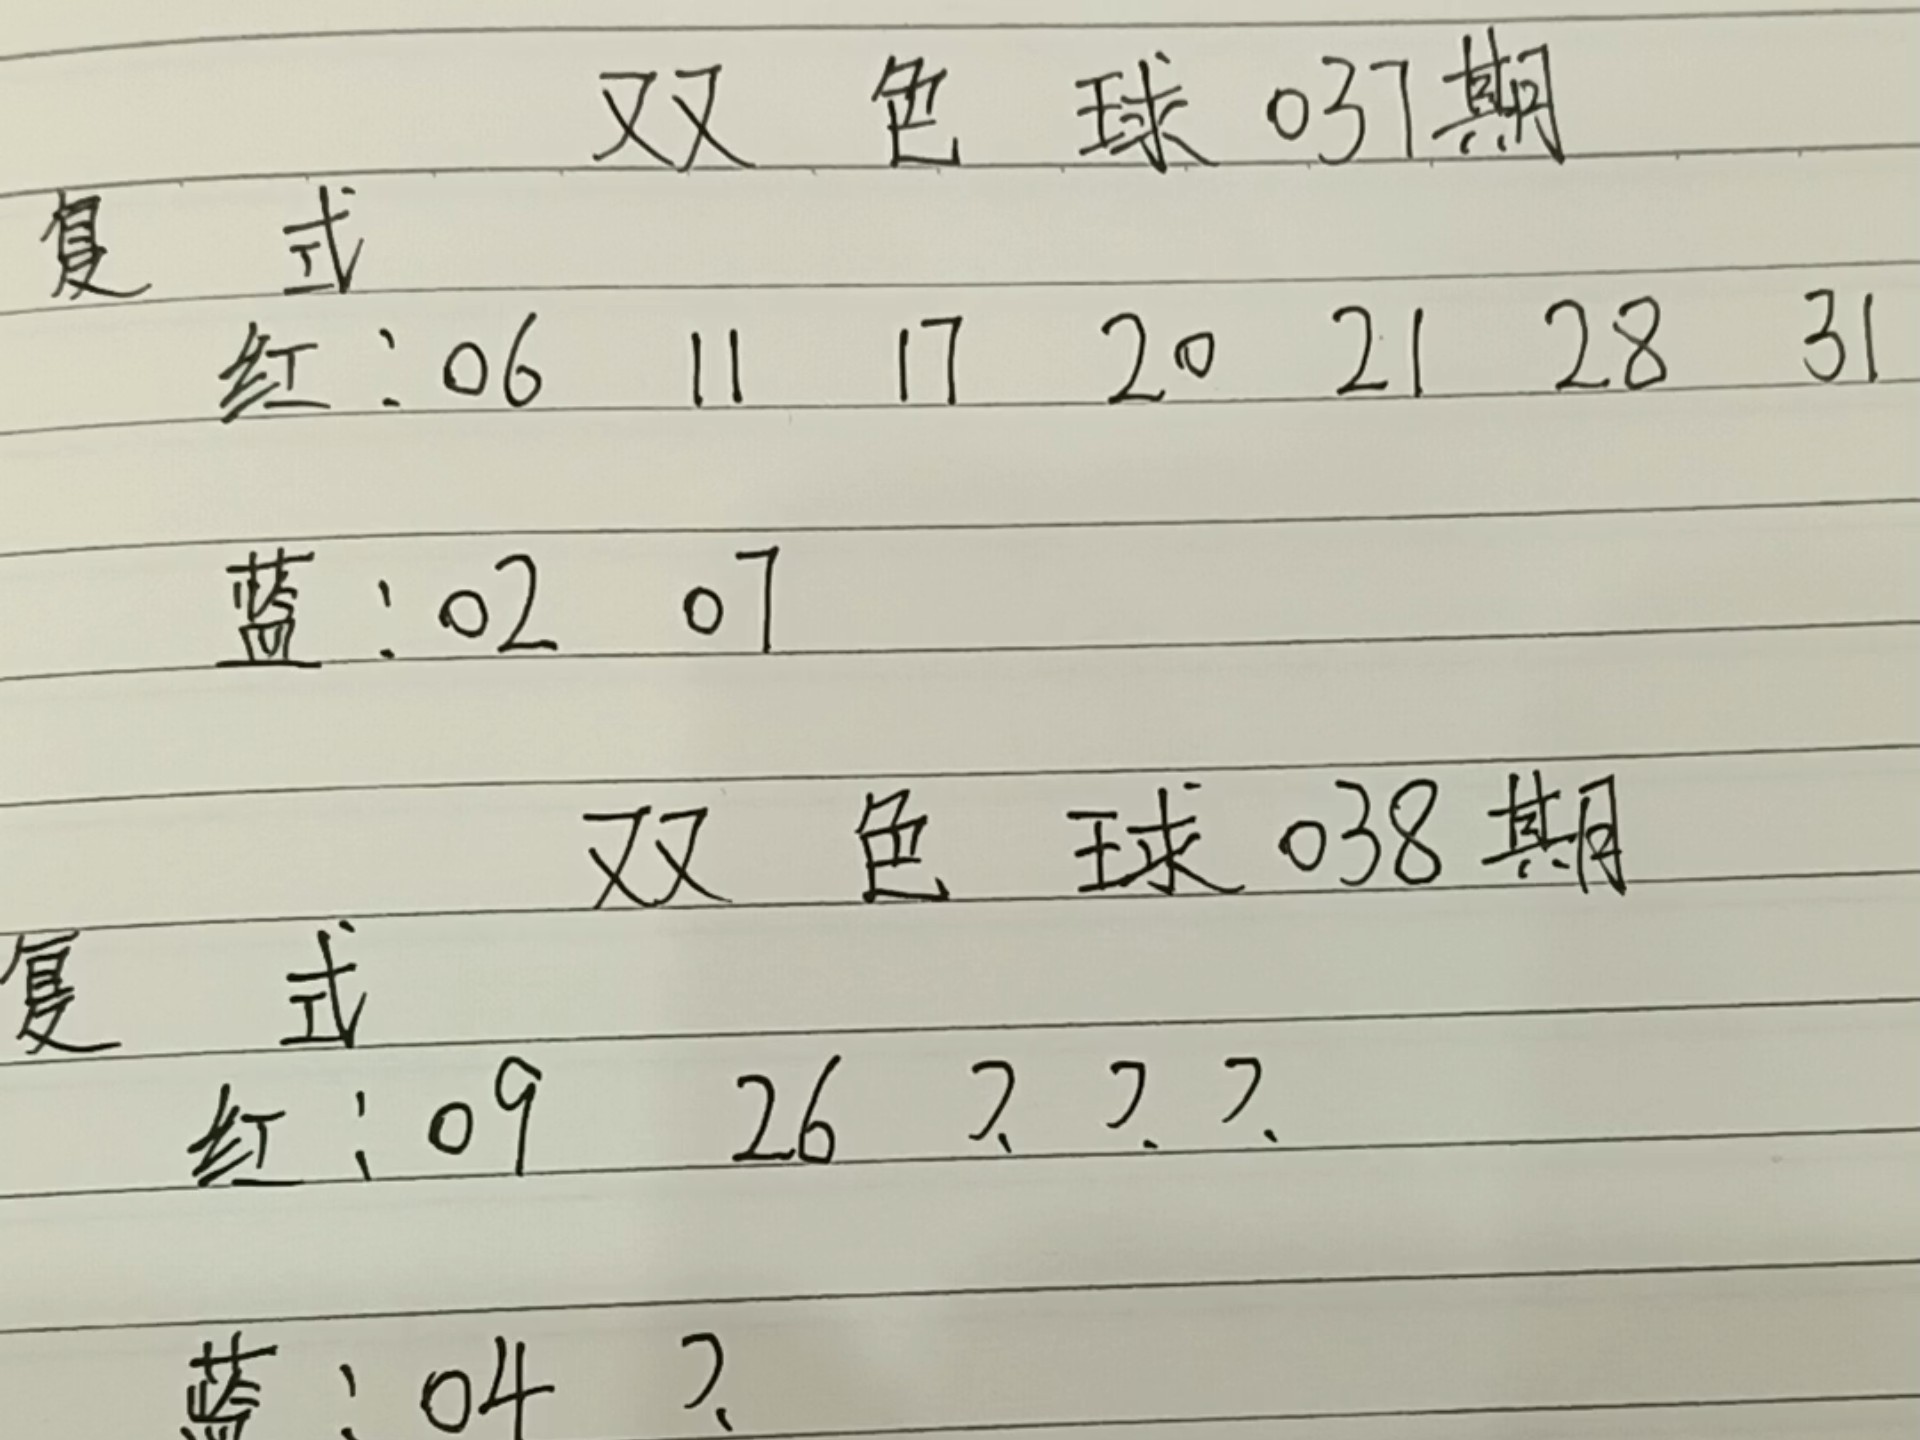 双色球037期
复式
红:06 11 17 20 21 28 31
蓝:02 07
双色球038期
复式
红:09 26 ? ? ?
蓝:04 ?